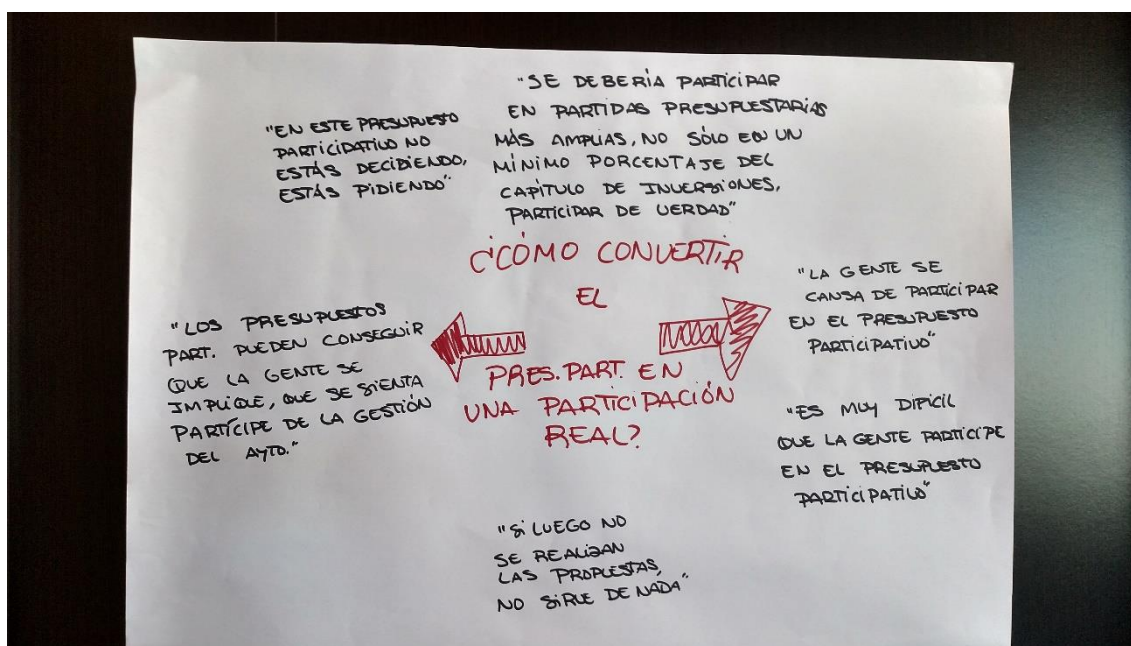 "EN ESTE PRESUPUESTO
PARTICIPATIVO NO
ESTÁS DECIDIENDO,
ESTÁS PIDIENDO"
"SE DEBERÍA PARTICIPAR
EN PARTIDAS PRESUPUESTARIAS
MÁS AMPLIAS, NO SÓLO EN UN
MÍNIMO PORCENTAJE DEL
CAPÍTULO DE INVERSIONES,
PARTICIPAR DE VERDAD"
¿CÓMO CONVERTIR
EL
PRES. PART. EN
UNA PARTICIPACIÓN
REAL?
"LOS PRESUPUESTOS
PART. PUEDEN CONSEGUIR
QUE LA GENTE SE
IMPLIQUE, QUE SE SIENTA
PARTÍCIPE DE LA GESTIÓN
DEL AYTO."
"LA GENTE SE
CANSA DE PARTICIPAR
EN EL PRESUPUESTO
PARTICIPATIVO"
"ES MUY DIFÍCIL
QUE LA GENTE PARTICIPE
EN EL PRESUPUESTO
PARTICIPATIVO"
"SI LUEGO NO
SE REALIZAN
LAS PROPUESTAS,
NO SIRVE DE NADA"